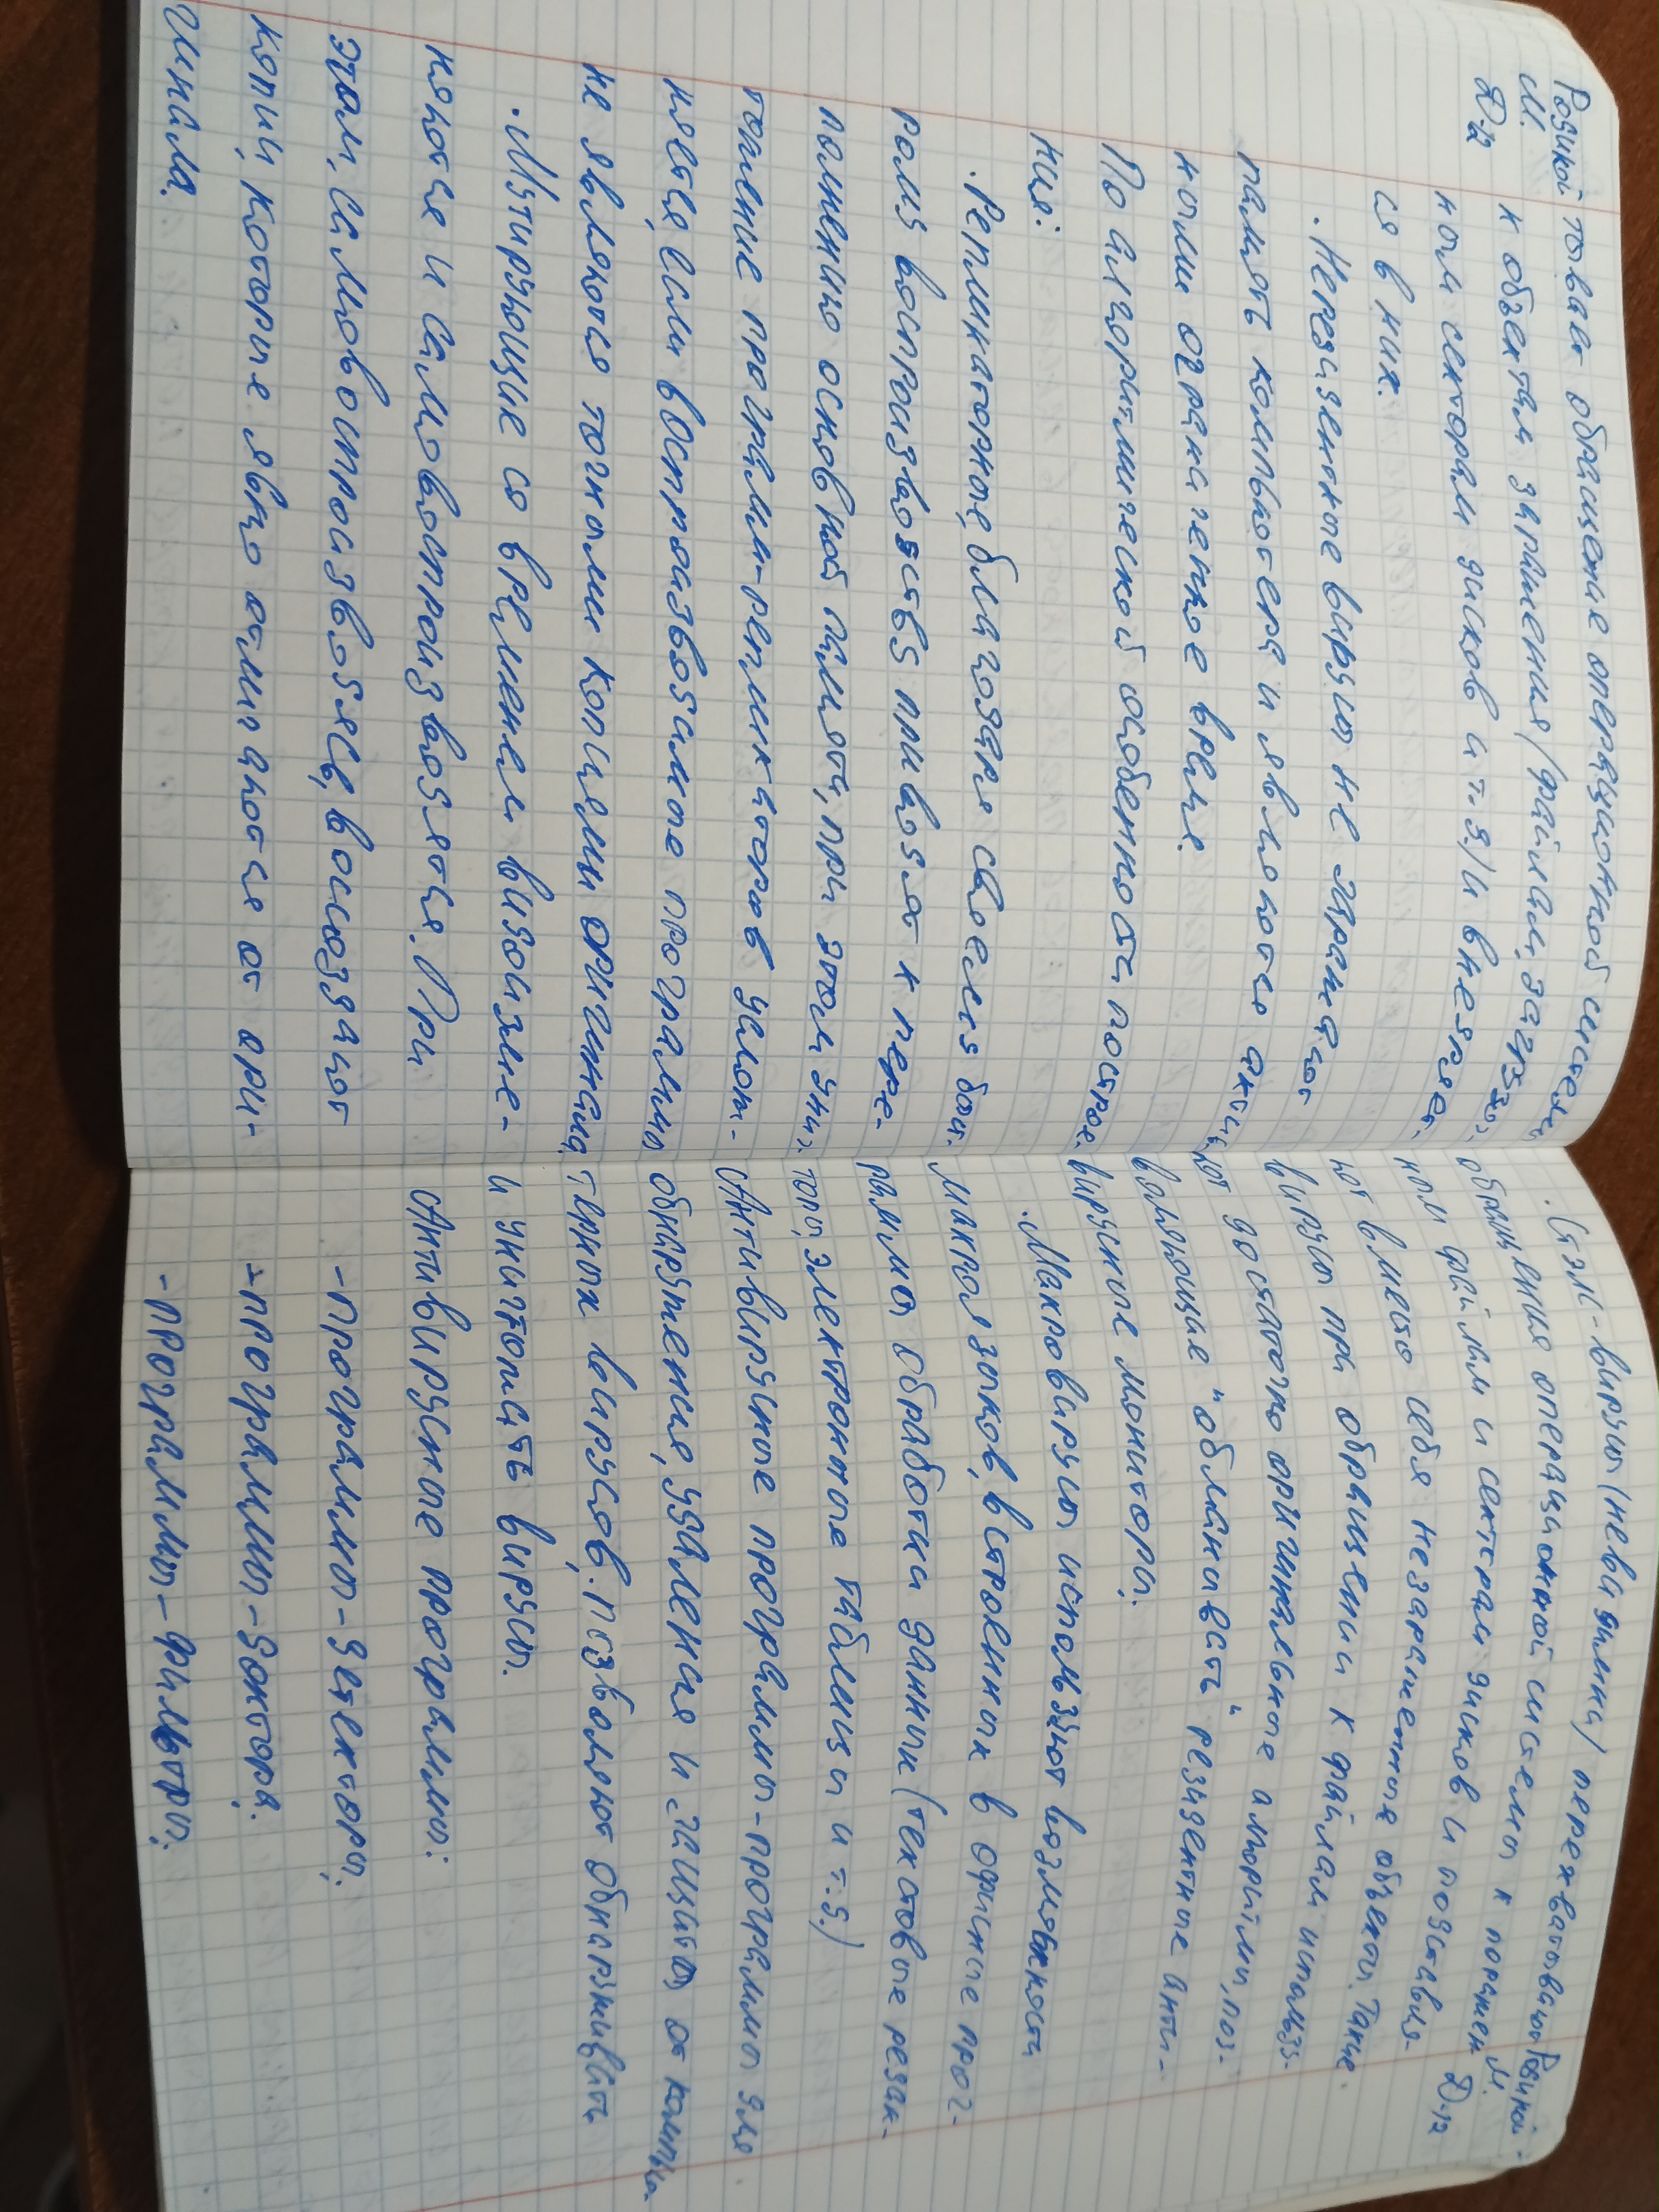 Родикой
М.
Д-12
товает обращение операционной системы
к объектам заражения (файлам, загрузоч-
ным секторам дисков и т.д.) и внедряет-
ся в них.
· Нерезидентные вирусы не заражают
память компьютера и являются актив-
ными ограниченное время.
По алгоритмической особенности построе-
ния:
· Репликаторные, благодаря своему быст-
рому воспроизводству приводят к пере-
полнению основной памяти, при этом уни-
тожение программ-репликаторов услож-
няется, если воспроизводимые программы
не являются точными копиями оригинала,
· Мутирующие со временем видоизме-
няются и самовоспроизводятся. При
этом, самовоспроизводясь, воссоздают
копии, которые явно отличаются от ори-
гинала.
Родикой
М.
Д-12
· Стэлс-вирусы (невидимки) перехватывают
обращения операционной системы к поражен-
ным файлам и секторам дисков и подставля-
ют вместо себя незараженные объекты. Такие
вирусы при обращении к файлам использу-
ют достаточно оригинальные алгоритмы, поз-
воляющие "обманывать" резидентные анти-
вирусные мониторы.
· Макровирусы используют возможности
макроязыков, встроенных в офисные прог-
раммы обработки данных (текстовые редак-
торы, электронные таблицы и т.д.)
Антивирусные программы-программы для
обнаружения, удаления и защиты от компью-
терных вирусов, позволяют обнаруживать
и уничтожать вирусы.
Антивирусные программы:
-программы-детекторы;
-программы-доктора;
-программы-фильтры;